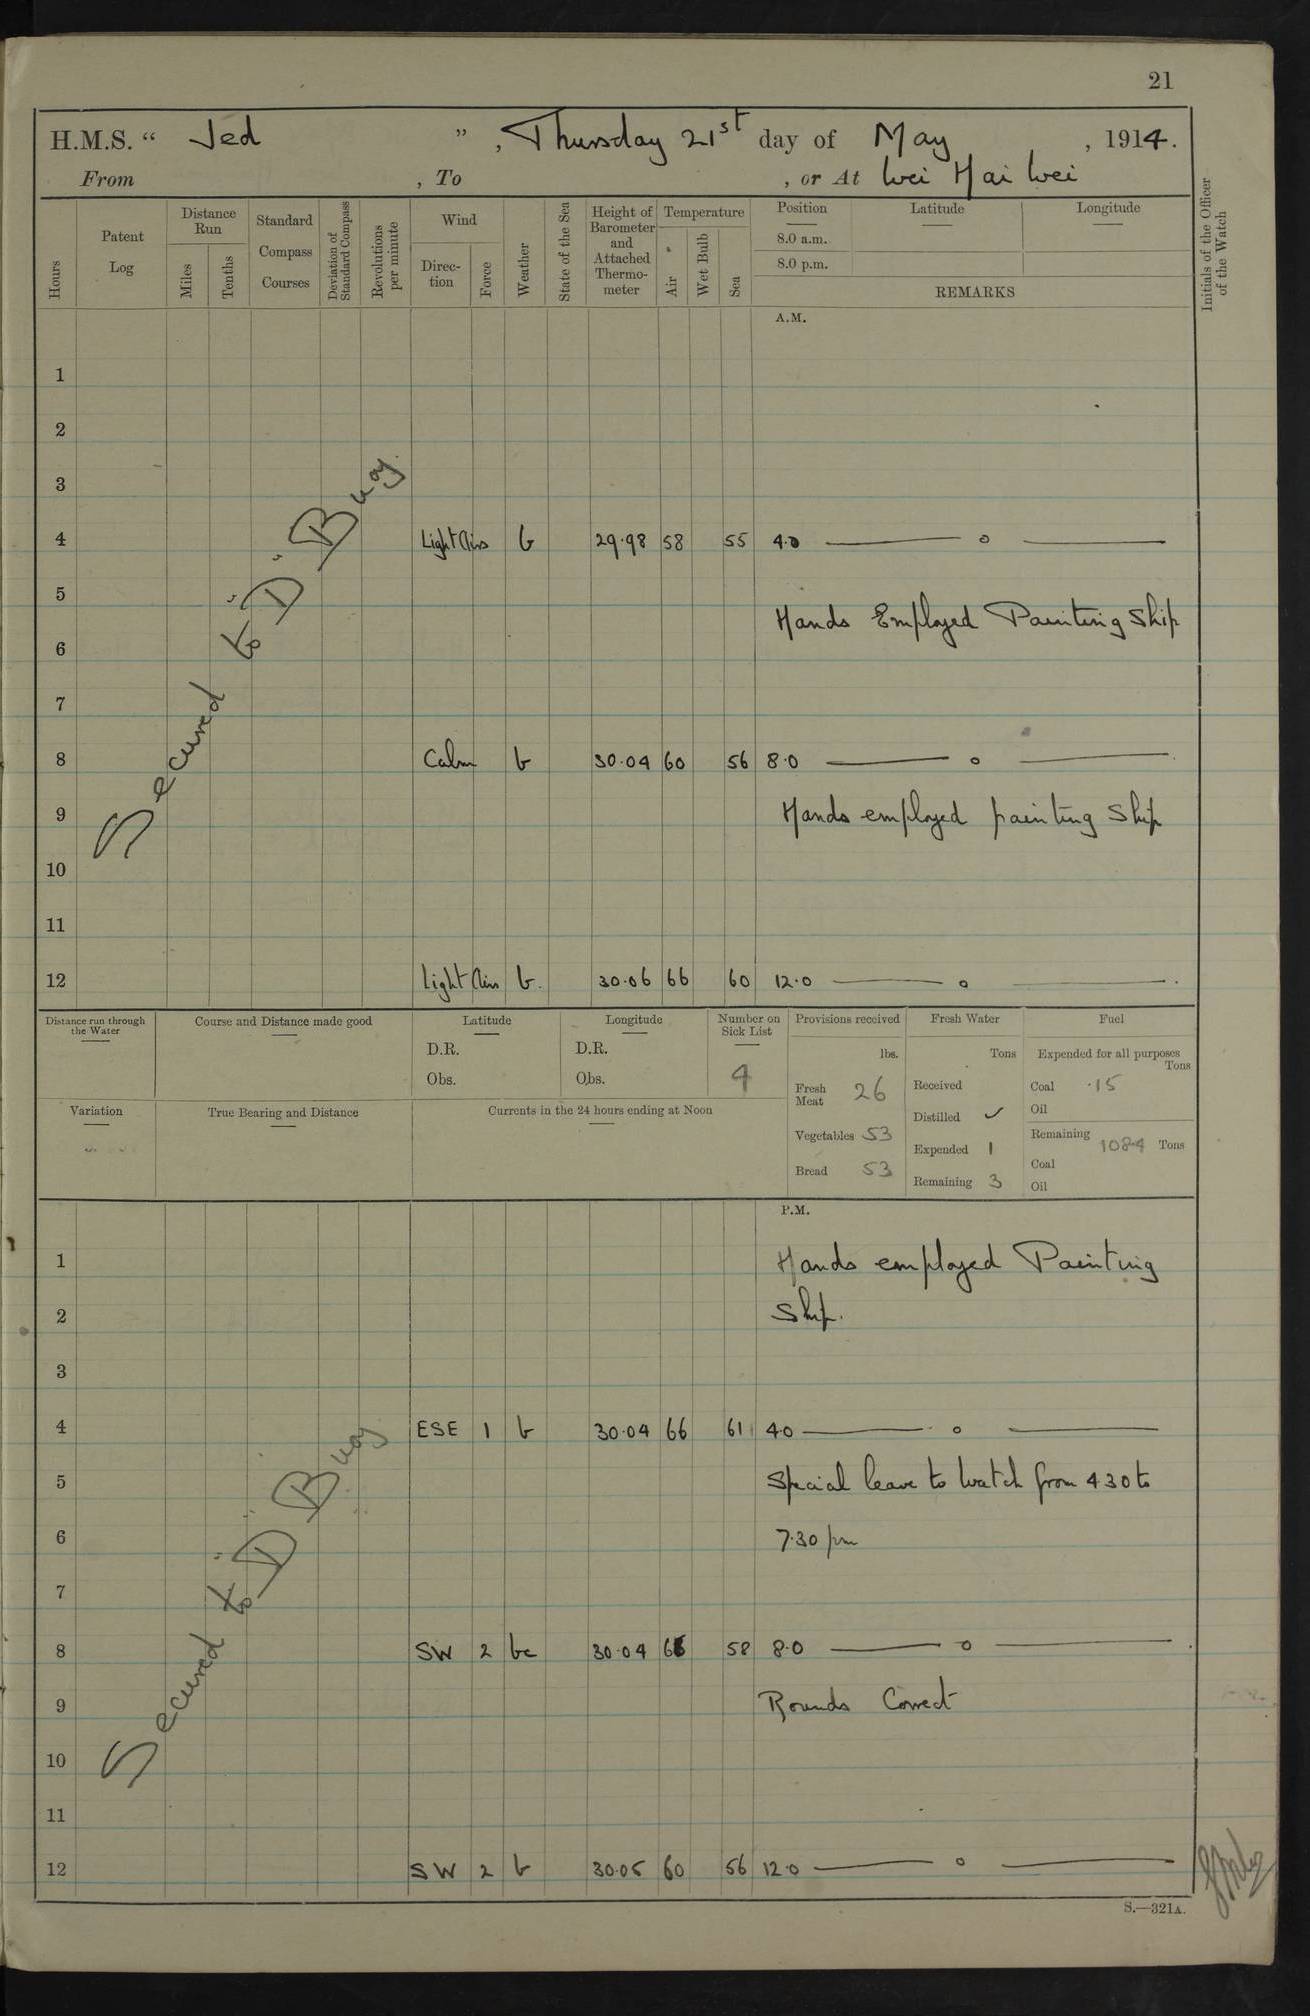 21
H.M.S. “ Jed ”, Thursday 21st day of May, 1914.
From , To , or At Wei Hai Wei
Hours
Patent Log
Distance Run
Miles
Tenths
Standard Compass Courses
Deviation of Standard Compass
Revolutions per minute
Wind
Direction
Force
Weather
State of the Sea
Height of Barometer and Attached Thermometer
Temperature
Air
Wet Bulb
Sea
Position
8.0 a.m.
8.0 p.m.
Latitude
Longitude
REMARKS
Initials of the Officer of the Watch
A.M.
1
2
3
4 Light Airs b 29.98 58 55 4.0 — o —
5
Hands Employed Painting Ship
6
7
8 Calm b 30.04 60 56 8.0 — o —
9 Hands employed painting Ship
10
11
12 Light Airs b. 30.06 66 60 12.0 — o —
Secured to "D" Buoy.
Distance run through the Water
Course and Distance made good
Latitude
D.R.
Obs.
Longitude
D.R.
Obs.
Number on Sick List
4
Provisions received
lbs.
Fresh Meat 26
Vegetables 53
Bread 53
Fresh Water
Tons
Received
Distilled ✓
Expended 1
Remaining 3
Fuel
Expended for all purposes
Tons
Coal .15
Oil
Remaining 108.4 Tons
Coal
Oil
Variation
True Bearing and Distance
Currents in the 24 hours ending at Noon
P.M.
1 Hands employed Painting
2 Ship.
3
4 ESE 1 b 30.04 66 61 4.0 — o —
5 Special leave to Watch from 4 30 to
6 7.30 pm
7
8 SW 2 bc 30.04 58 8.0 — o —
9 Rounds Correct
10
11
12 SW 2 b 30.05 60 56 12.0 — o —
Secured to "D" Buoy
S.—321A.